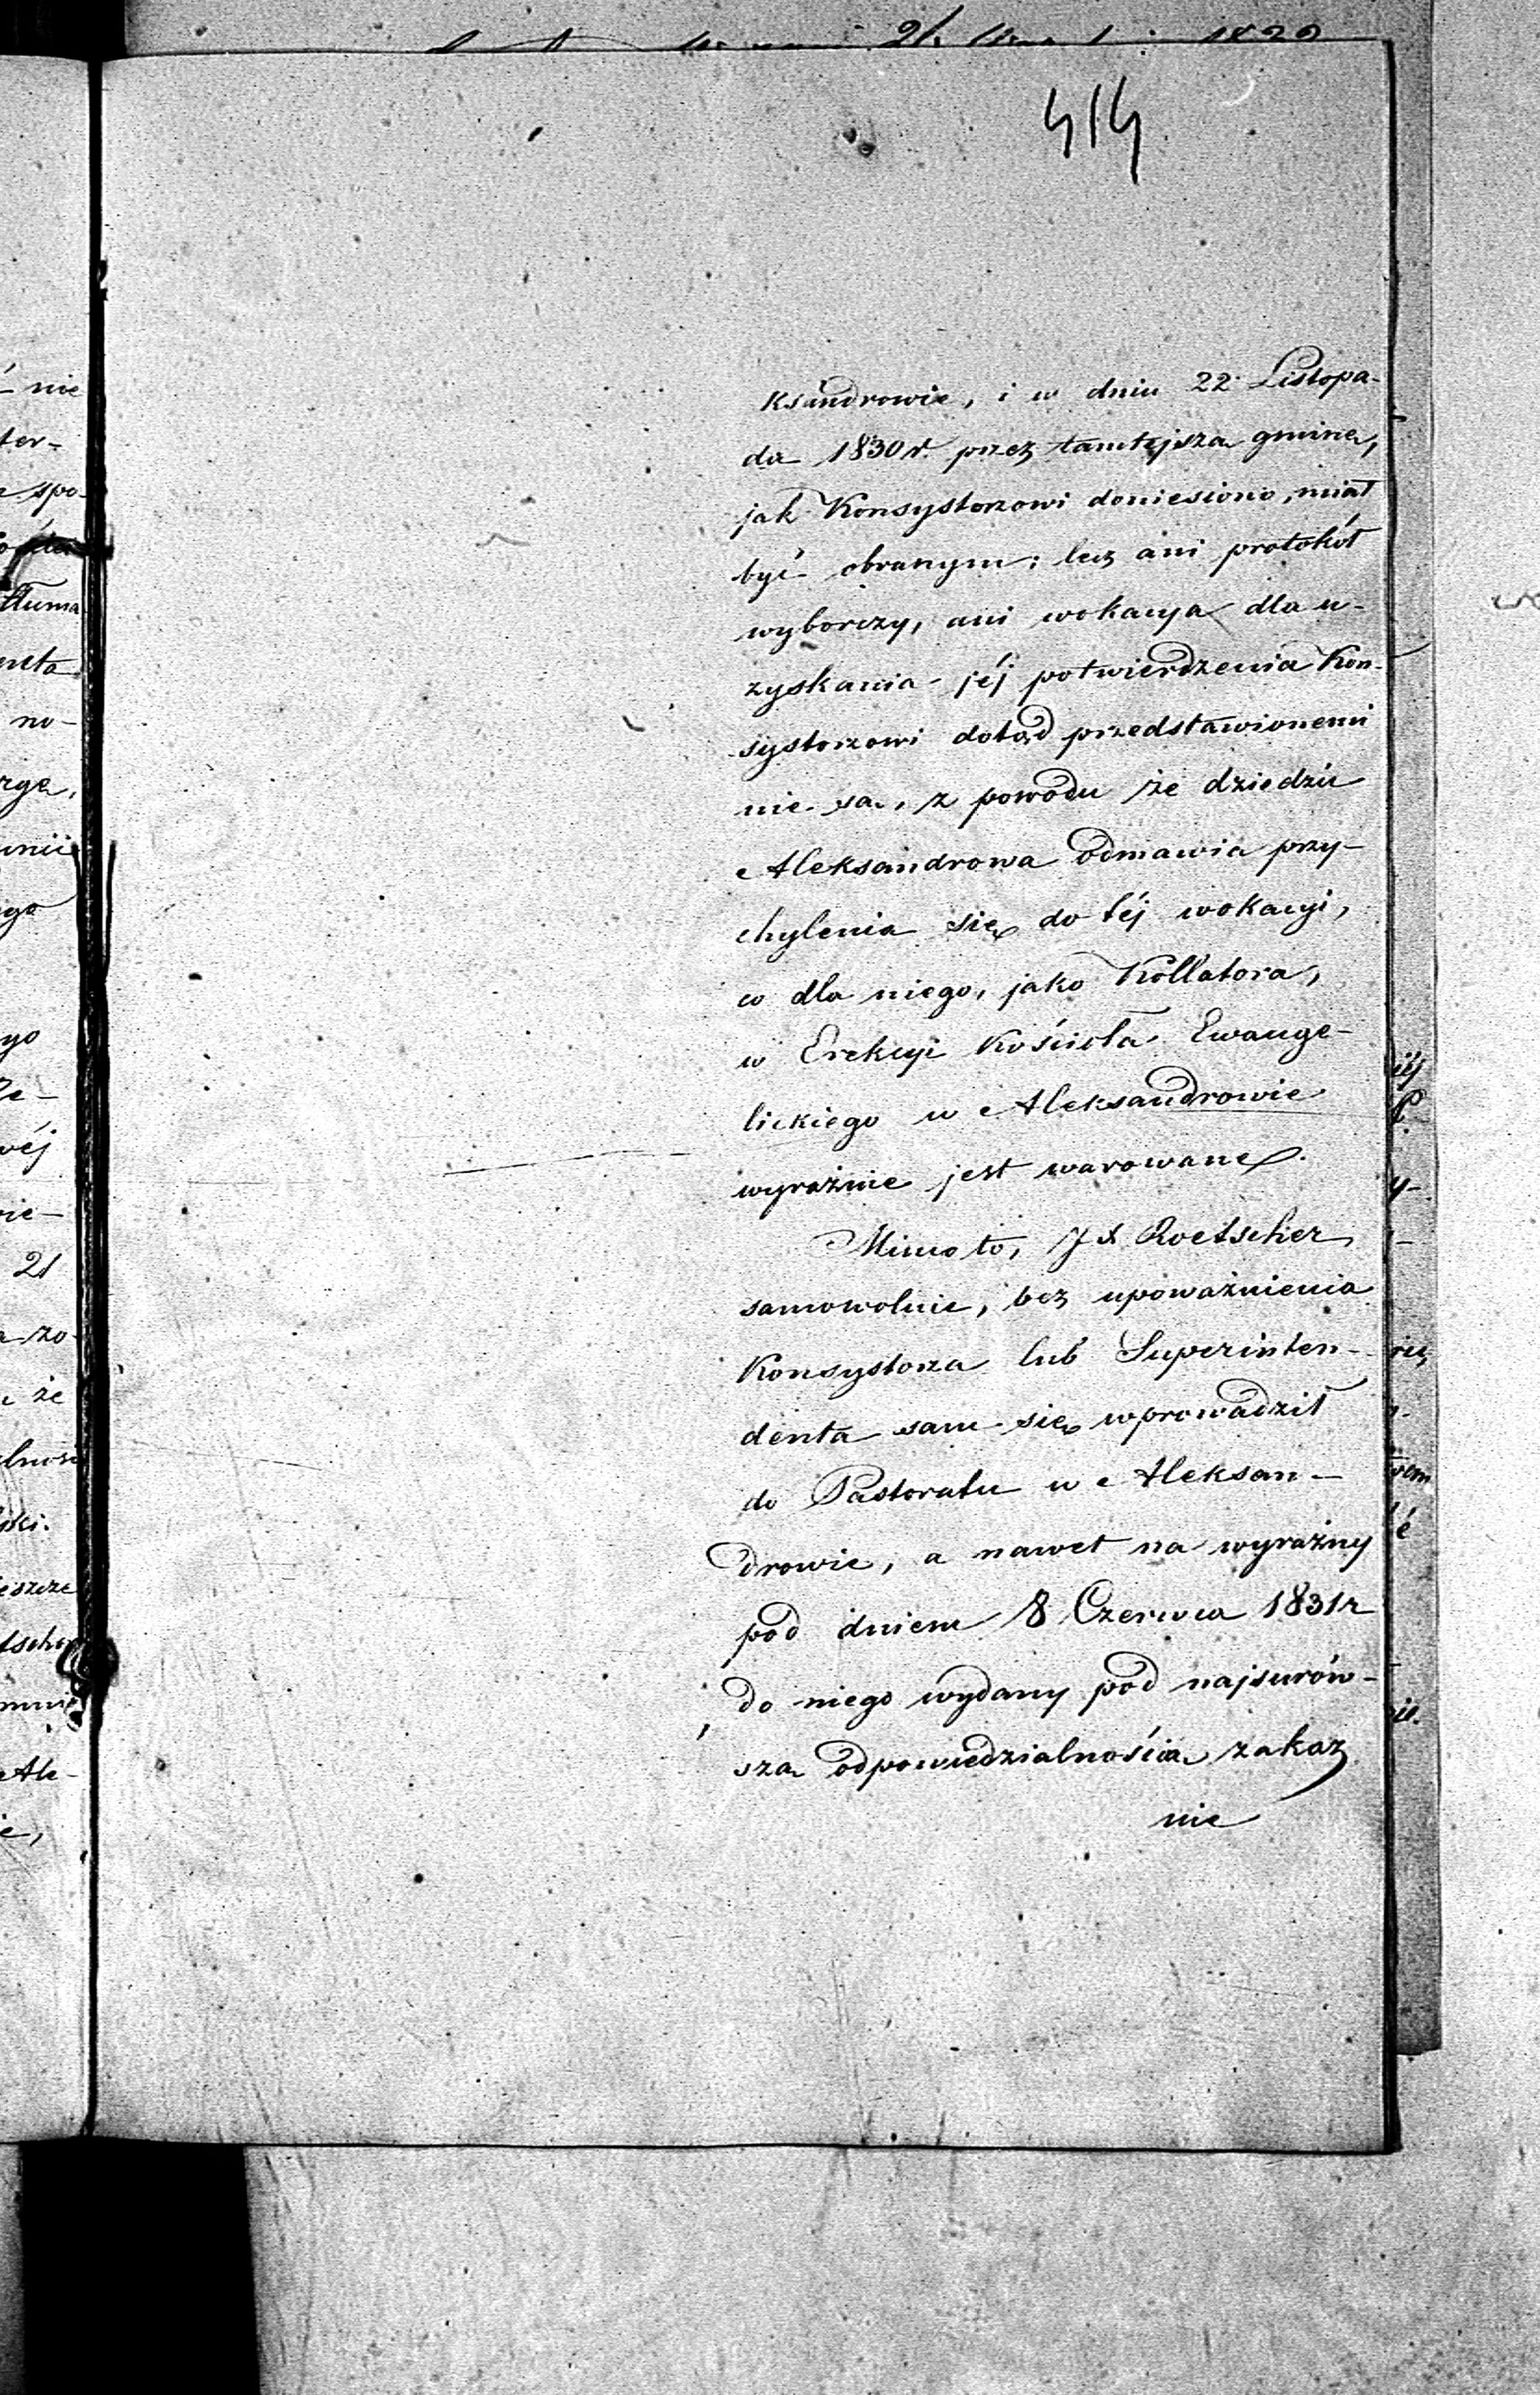 414
ksandrowie, i w dniu 22 Listopa-
da 1830 r. przez tamtejszą gminę,
jak Konsystorzowi doniesiono, miał
być obranym; lecz ani protokół
wyborczy, ani wokacya dla u-
zyskania jéj potwierdzenia Kon-
systorzowi dotąd przedstawionemi
nie są, z powodu że dziedzic
Aleksandrowa odmawia przy-
chylenia się do téj wokacyi,
co dla niego, jako Kollatora,
w Erekcyi Kościoła Ewange-
lickiego w Aleksandrowie
wyraźnie jest warowane.
Mimo to, JX Roetscher,
samowolnie, bez upoważnienia
Konsystorza lub Superinten-
denta sam się wprowadził
do Pastoratu w Aleksan-
drowie, a nawet na wyraźny
pod dniem 8 Czerwca 1831 r
do niego wydany pod najsurów-
szą odpowiedzialnością zakaz
nie